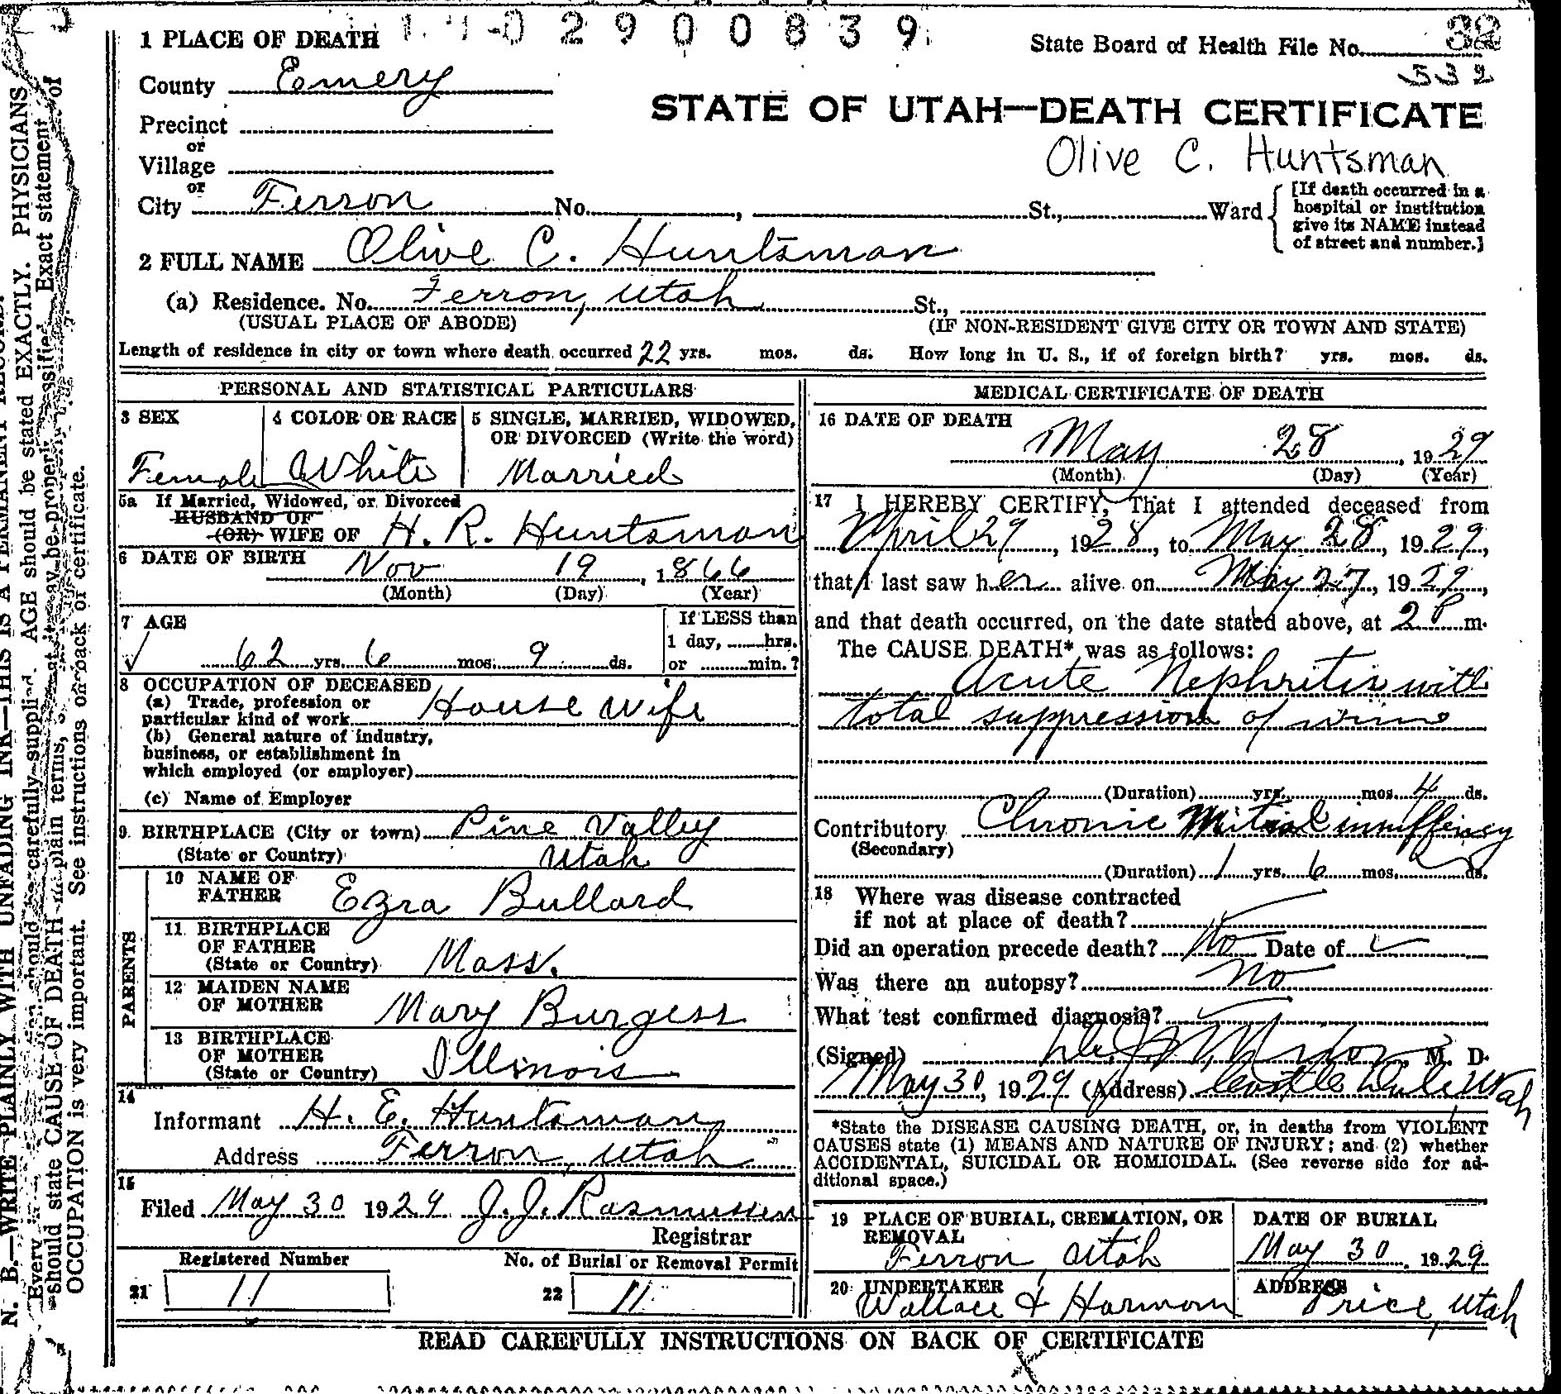 02900839
1 PLACE OF DEATH
State Board of Health File No. 32
532
County Emery
STATE OF UTAH—DEATH CERTIFICATE
Precinct
or
Olive C. Huntsman
Village
or
City Ferron No. , St., Ward
[If death occurred in a
hospital or institution
give its NAME instead
of street and number.]
2 FULL NAME Olive C. Huntsman
(a) Residence. No. Ferron, Utah St.,
(USUAL PLACE OF ABODE) (IF NON-RESIDENT GIVE CITY OR TOWN AND STATE)
Length of residence in city or town where death occurred 22 yrs. mos. ds. How long in U. S., if of foreign birth? yrs. mos. ds.
PERSONAL AND STATISTICAL PARTICULARS
3 SEX 4 COLOR OR RACE 5 SINGLE, MARRIED, WIDOWED,
OR DIVORCED (Write the word)
Female White Married
5a If Married, Widowed, or Divorced
HUSBAND OF
(OR) WIFE OF H. R. Huntsman
6 DATE OF BIRTH Nov 19, 1866
(Month) (Day) (Year)
7 AGE If LESS than
1 day, hrs.
62 yrs. 6 mos. 9 ds. or min.?
8 OCCUPATION OF DECEASED
(a) Trade, profession or
particular kind of work House Wife
(b) General nature of industry,
business, or establishment in
which employed (or employer)
(c) Name of Employer
9. BIRTHPLACE (City or town) Pine Valley
(State or Country) Utah
PARENTS
10 NAME OF
FATHER Ezra Bullard
11 BIRTHPLACE
OF FATHER
(State or Country) Mass.
12 MAIDEN NAME
OF MOTHER Mary Burgess
13 BIRTHPLACE
OF MOTHER
(State or Country) Illinois
14
Informant H. E. Huntsman
Address Ferron, Utah
15
Filed May 30 1929 J. J. Rasmussen
Registrar
Registered Number No. of Burial or Removal Permit
21 11 22 11
MEDICAL CERTIFICATE OF DEATH
16 DATE OF DEATH
May 28, 1929
(Month) (Day) (Year)
17 I HEREBY CERTIFY, That I attended deceased from
April 29, 1928, to May 28, 1929,
that I last saw her alive on May 27, 1929,
and that death occurred, on the date stated above, at 2 P m.
The CAUSE DEATH* was as follows:
Acute Nephritis with
total suppression of urine
(Duration) yrs. mos. 4 ds.
Contributory Chronic Mitral insufficiency
(Secondary)
(Duration) 1 yrs. 6 mos. ds.
18 Where was disease contracted
if not at place of death?
Did an operation precede death? No Date of
Was there an autopsy? No
What test confirmed diagnosis?
(Signed) M. D.
May 30, 1929 (Address) Castle Dale Utah
*State the DISEASE CAUSING DEATH, or, in deaths from VIOLENT
CAUSES state (1) MEANS AND NATURE OF INJURY; and (2) whether
ACCIDENTAL, SUICIDAL OR HOMICIDAL. (See reverse side for ad-
ditional space.)
19 PLACE OF BURIAL, CREMATION, OR
REMOVAL
Ferron, Utah
DATE OF BURIAL
May 30, 1929
20 UNDERTAKER
Wallace & Harmon
ADDRESS
Price, Utah
READ CAREFULLY INSTRUCTIONS ON BACK OF CERTIFICATE